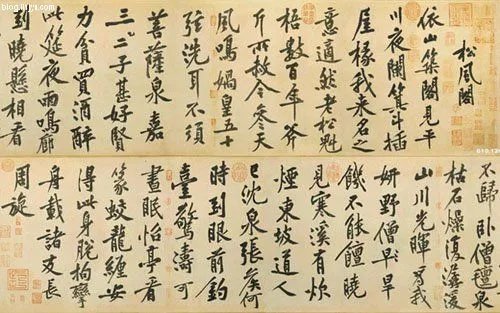 松風閣
依山築閣見平
川夜闌箕斗插
屋椽我來名之
意適然老松魁
梧數百年斧
斤所赦今參天
風鳴媧皇五十
弦洗耳不須
菩薩泉嘉
三二子甚好賢
力貧買酒醉
此筵夜雨鳴廊
到曉懸相看
不歸臥僧氈泉
枯石燥復潺湲
山川光暉為我
妍野僧旱早
饑不能饘曉
見寒溪有炊
煙東坡道人
已沈泉張侯何
時到眼前釣
臺驚濤可
晝眠怡亭看
篆蛟龍纏安
得此身脫拘攣
舟載諸友長
周旋